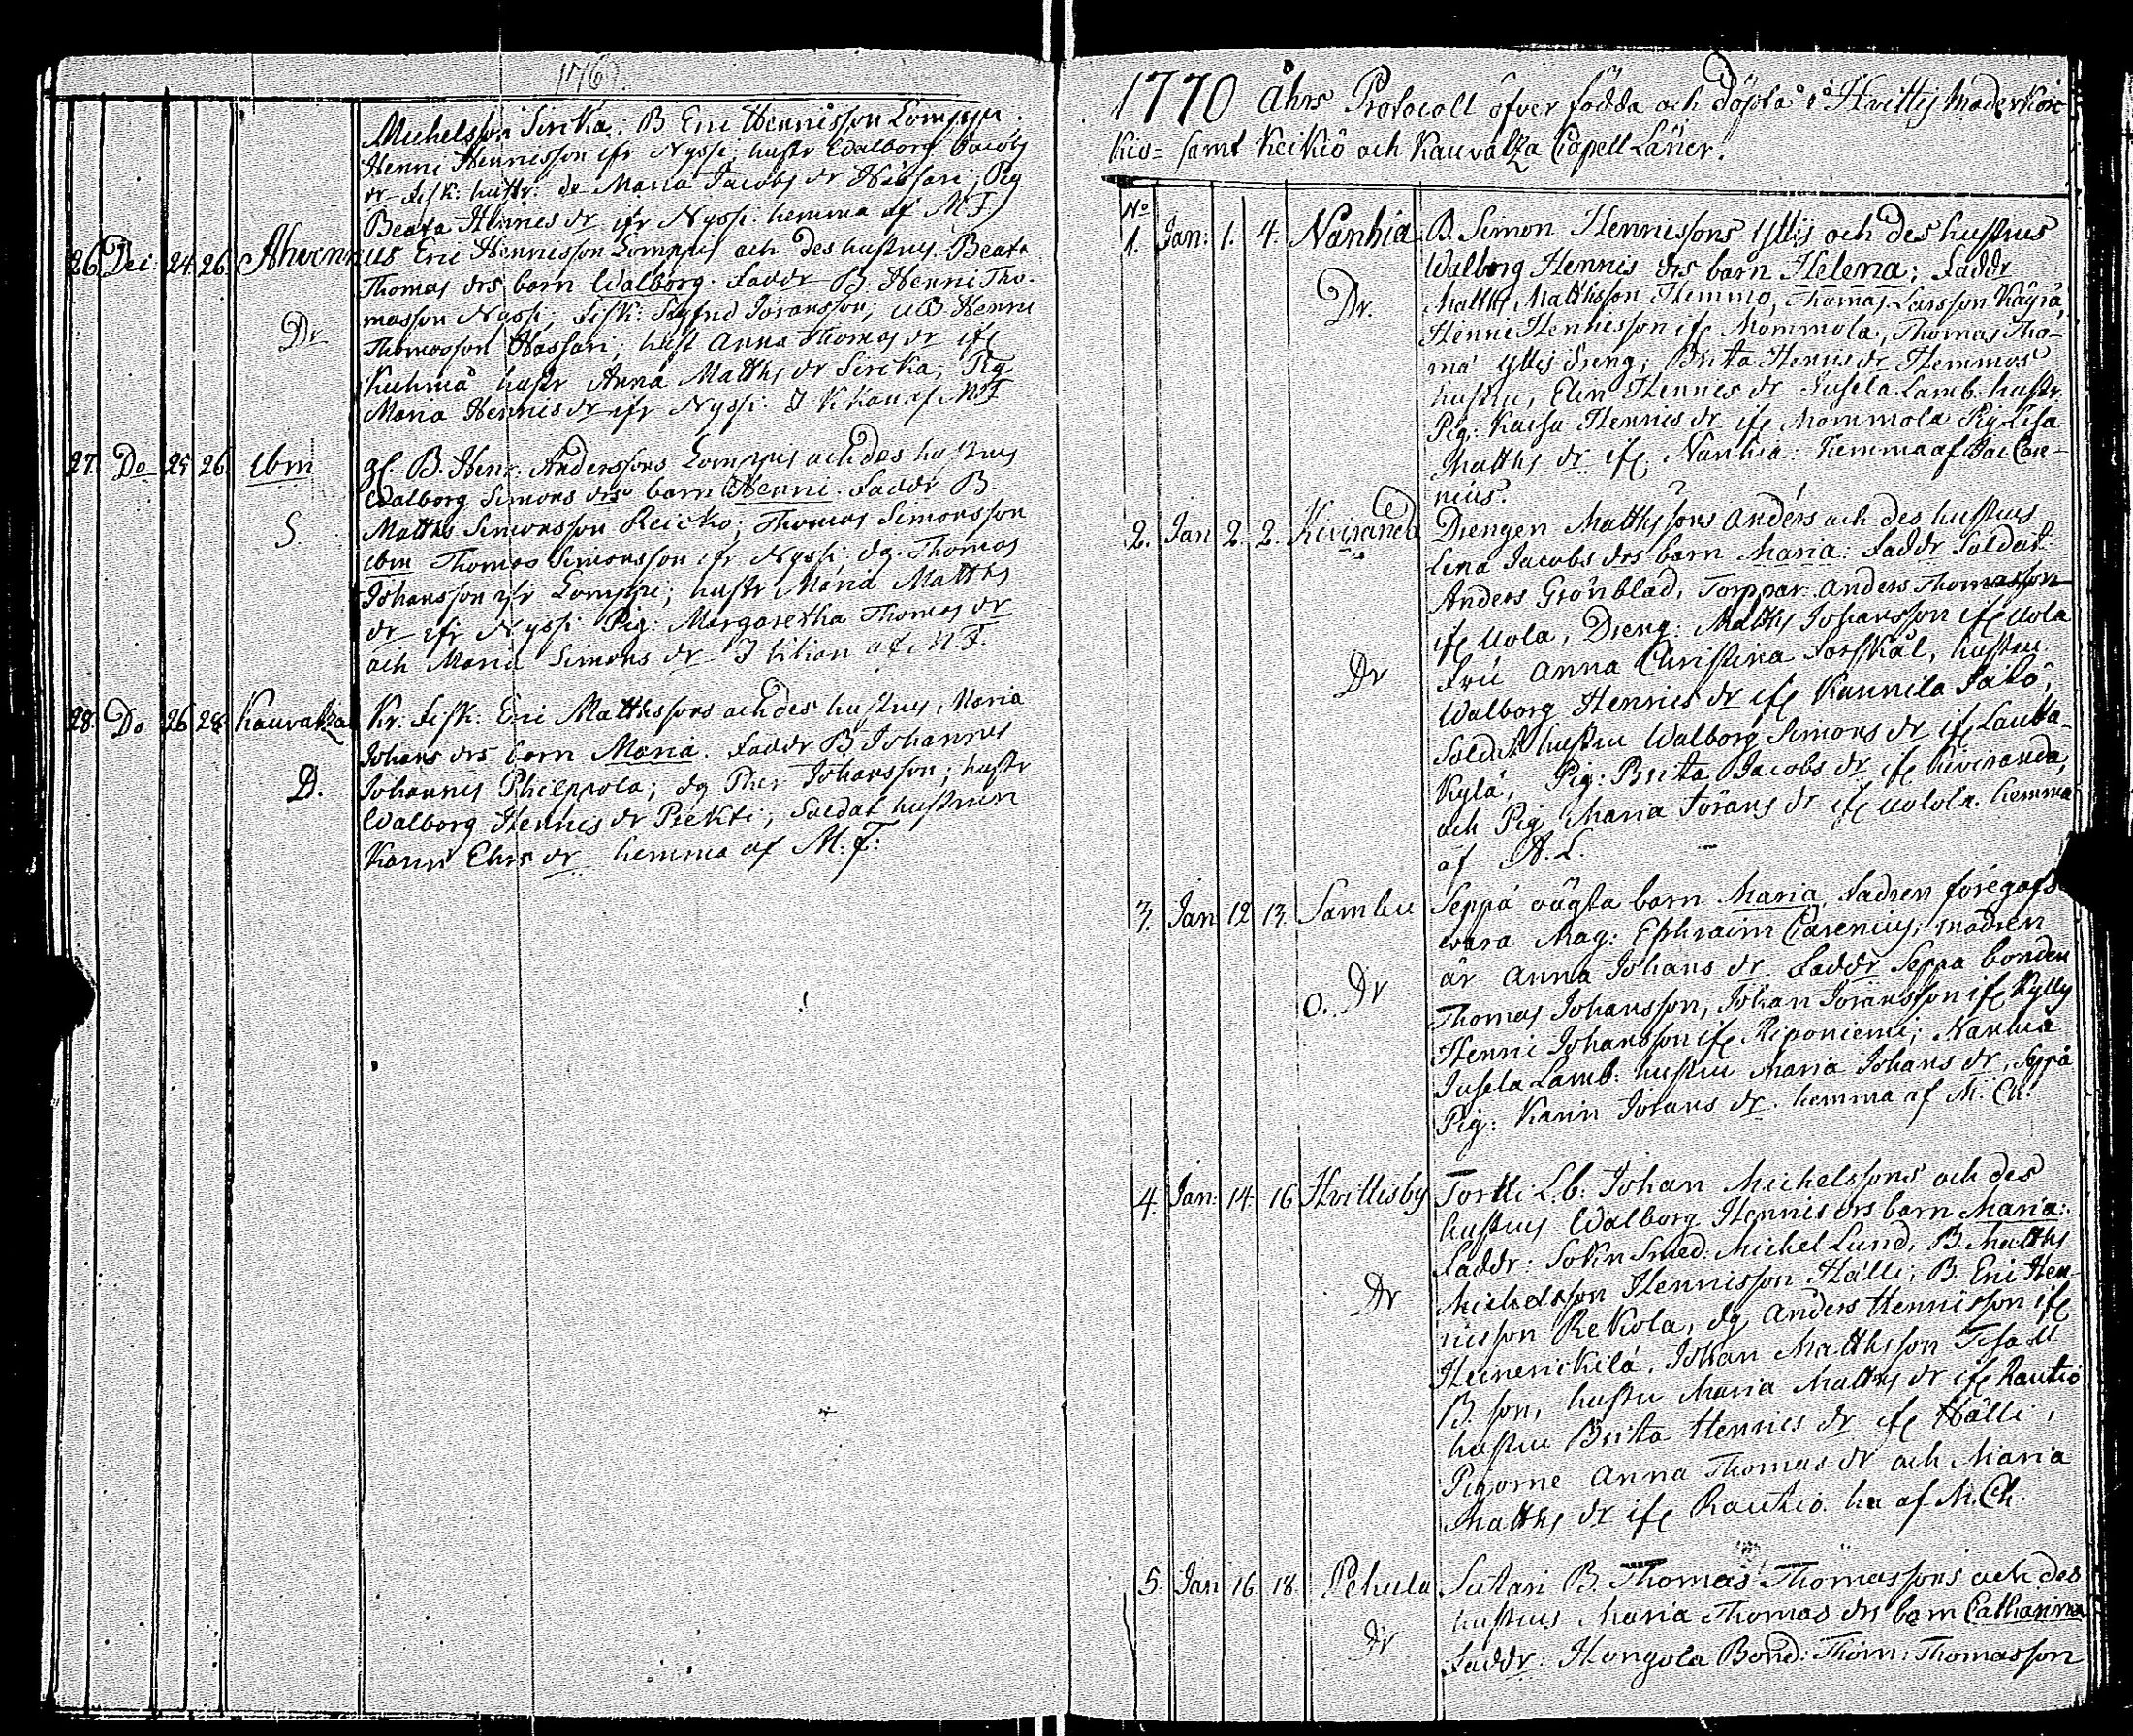 1769.
Michelsson Sirika. B Eric Hennisson Lomppi.
Henni Hennisson ifr Nyssi; hustr Walborg Jacobs
dr Fisk: hustr: de Maria Jacobs dr Hassari; Pig
Beata Hennis dr ifr Nyssi. hemma af M.F.
26. Dec: 24. 26. Ahvennus Eric Hennisson Lomppis och des hustrus Beata
Thomas drs barn Walborg. Faddr B. Henni Tho-
masson Nyssi; Fisk: Sigfred Joransson; UB Henni
Dr Thomasson Hassari; hust Anna Thomas dr ifr
Kuhmå hustr Anna Matths dr Sirika; Pig
Maria Hennis dr ifr Nyssi. I K kan af M.F
27. Do 25 26. ibm gl. B. Henr. Anderssons Lomppis och des hustrus
Walborg Simons drs barn Henni. Faddr B.
S. Matths Simonsson Reicko; Thomas Simonsson
ibm Thomas Simonsson ifr Nyssi; dg. Thomas
Johansson ifr Lomppi; hustr Maria Matths
dr ifr Nyssi Pig: Margaretha Thomas dr
och Maria Simons dr I kikan af M.F.
28. Do 26 28. Kauvatza Kr. Fisk: Eric Matthssons och des hustrus Maria
Johans drs barn Maria. Faddr B Johannes
D. Johannis Philppola; dg Pher Johansson; hustr
Walborg Hennis dr Piekti; Soldat hustrun
Karin Ehrs dr hemma af M. F:
1770 åhrs Protocoll öfver födda och döpta i Hvittis Moderkir-
kio- samt Keikiö och Kauvatza Capell Låner.
No
1. Jan: 1. 4. Nanhia B. Simon Hennissons Yllis och des hustrus
Walborg Hennis drs barn Helena; Faddr
Dr. Matths Matthsson Hemmo, Thomas Larsson Käyrä,
Henni Hennisson ifr Mommola, Thomas Tho-
ma Yllis dreng; Brita Hennis dr Hemmos
hustru, Elin Hennis dr Jusela Lamb. hustr.
Pig: Kaisa Hennis dr ifr Mommola Pig Lisa
Matths dr ifr Nanhia: hemma af Jac Care-
nius.
2. Jan 2. 2. Keviranda Drengen Matths sons Anders och des hustrus
Lena Jacobs drs barn Maria: Faddr Soldat
Anders Grönblad, Torppar: Anders Thomasson
ifr Uola, Dreng: Matths Johansson ifr Uola
Dr Fru Anna Christina Forskål, hustru
Walborg Hennis dr ifr Kunnila
Soldat hustru Walborg Simons dr ifr Lautta-
kylä, Pig: Brita Jacobs dr ifr Keviranda,
och Pig Maria Jörans dr ifr Uolola. hemma
af A. L.
3. Jan 12 13. Sambu Seppä oägta barn Maria, Fadren föregafs
vara Mag: Ephraim Carenius; modren
O. Dr är Anna Johans dr Faddr Seppä bonden
Thomas Johansson, Johan Joransson ifr Kylly
Henni Johansson ifr Riponiemi; Nanhia
Jusela Lamb: hustru Maria Johans dr, Seppä
Pig: Karin Jörans dr. hemma af M. Ch.
4. Jan: 14. 16 Hvittisby Tortti L.b: Johan Michelssons och des
hustrus Walborg Hennis drs barn Maria:
Faddr: Sokn Smed: Michel Lund, B. Matths
Dr Michelsson Hennisson Hälli; B. Eric Hen-
nisson Rekola, dg Anders Hennisson ifr
Heinerickilä, Johan Matthsson
B. son, hustru Maria Matths dr ifr Rautio
hustru Brita Hennis dr ifr Hälli,
Pigorne Anna Thomas dr och Maria
Matths dr ifr Rautio. ha af M. Ch.
5. Jan 16. 18. Pehula Sutari B. Thomas Thomassons och des
hustrus Maria Thomas drs barn Catharina
Dr Faddr: Hongola Bond: Thom: Thomasson